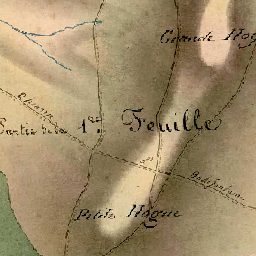 Grande Hog
Partie de la 1ère Feuille
Petite Hogue